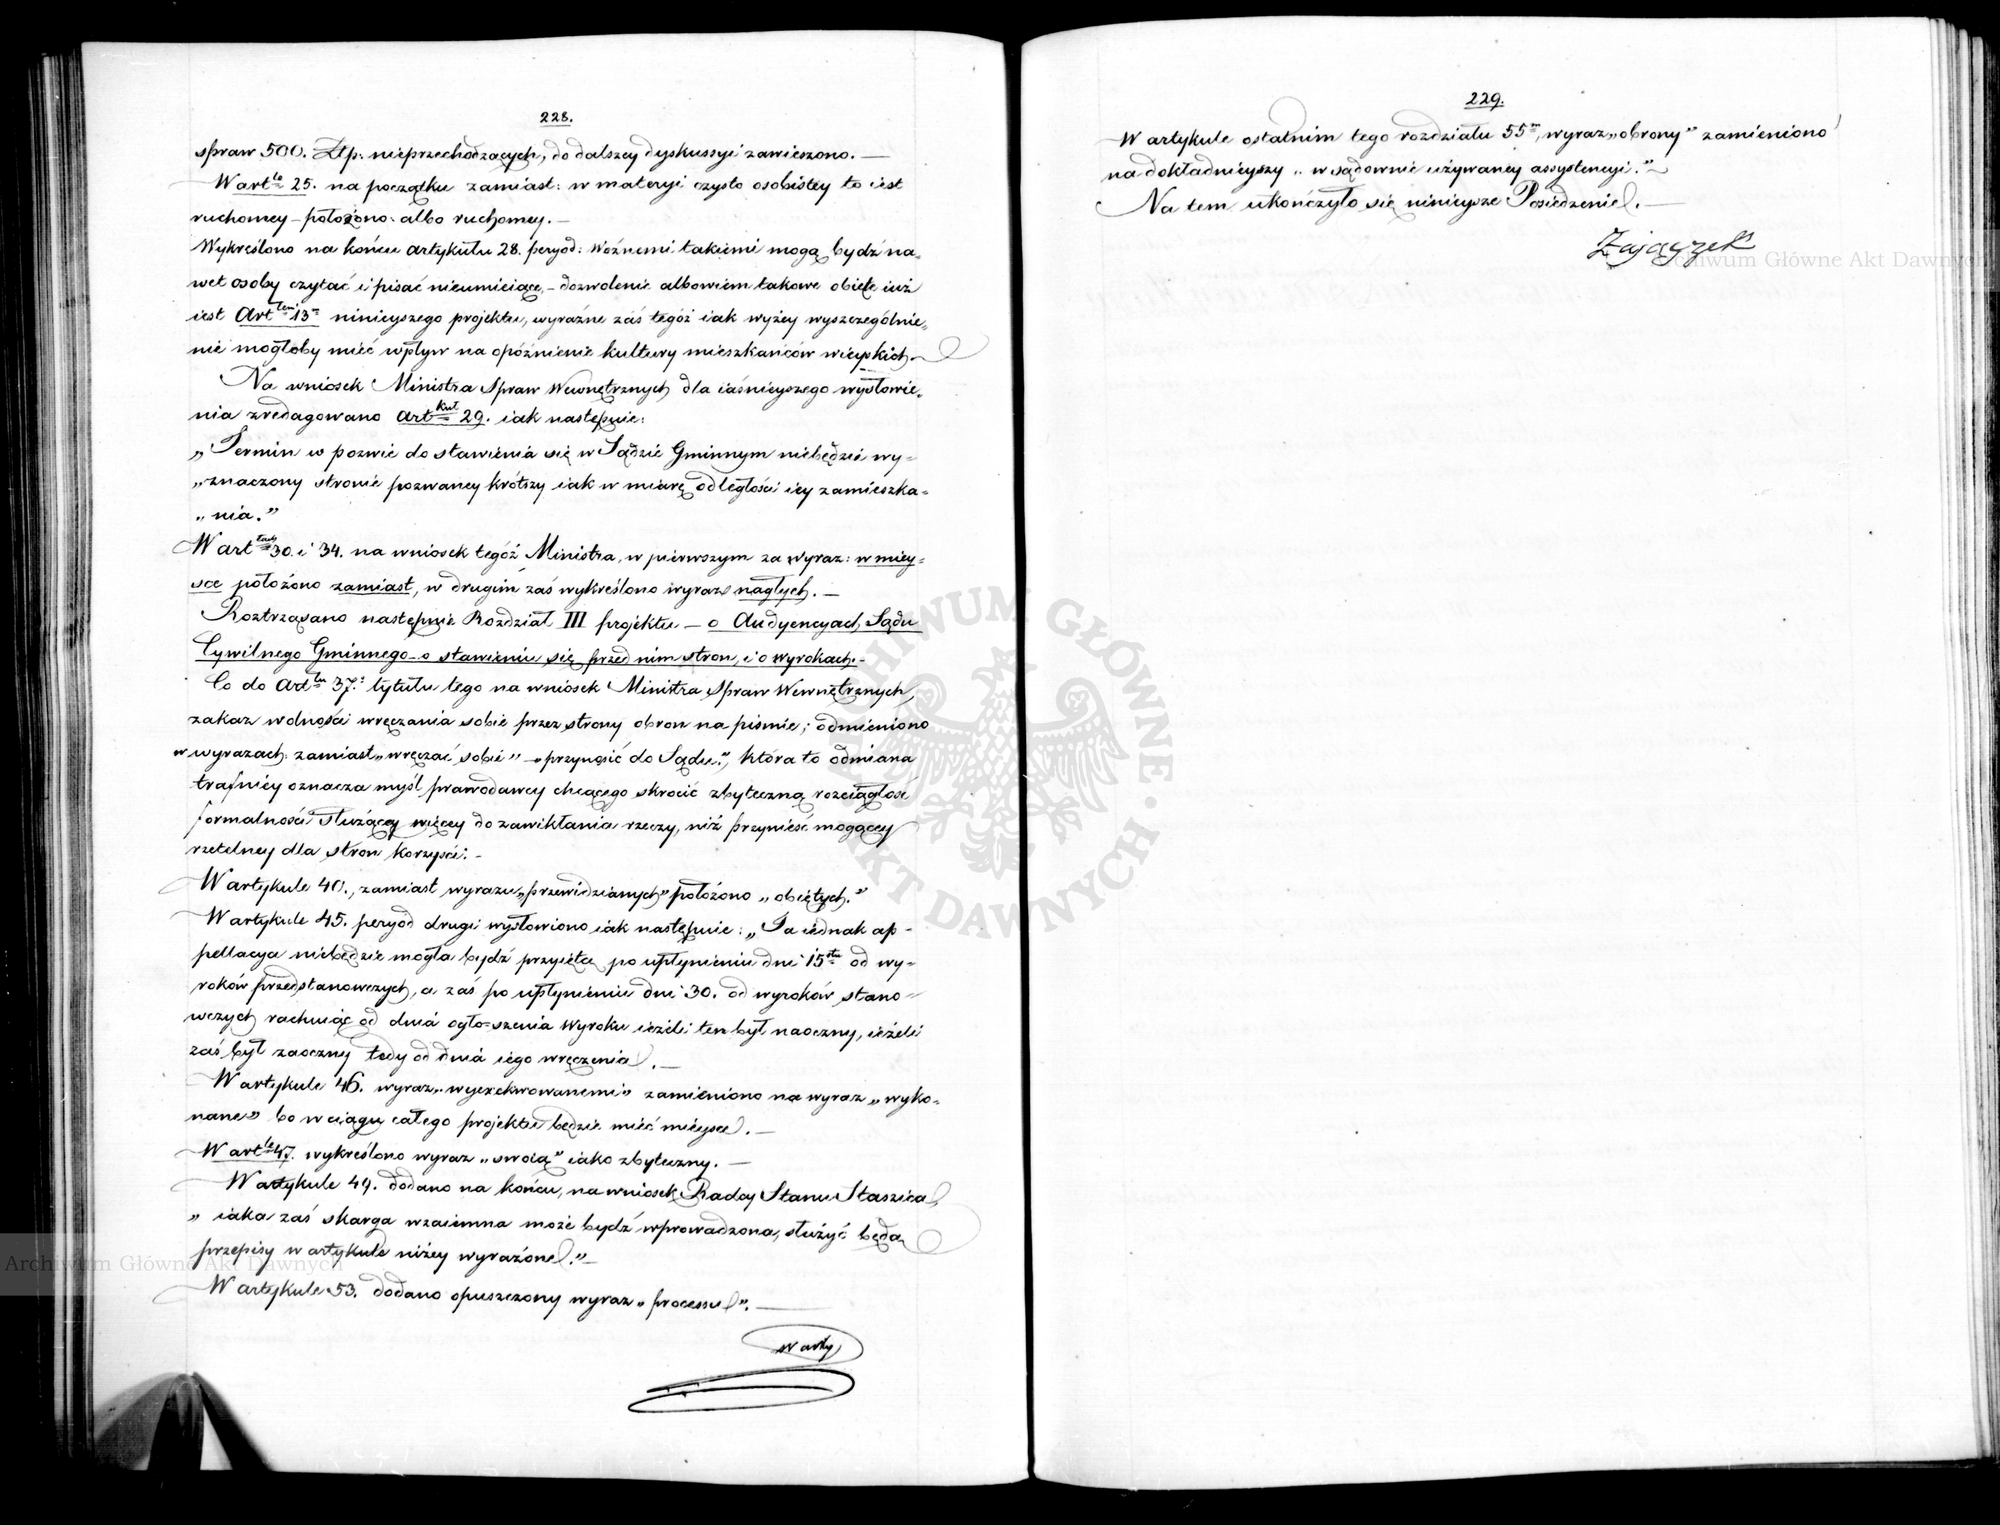 228.
spraw 500. Złp. nieprzechodzących, do dalszey dyskussyi zawieszono. —
W art^le 25. na początku zamiast: w materyi czysto osobistey to iest
ruchomey – położono: albo ruchomey. –
Wykreślono na końcu artykułu 28. peryod: Woźnemi takiemi mogą bydź na=
wet osoby czytać i pisać nieumieiące, – dozwolenie albowiem takowe obięte iuż
iest Art^tem 13^m ninieyszego projektu, wyraźne zaś tegóż iak wyżey wyszczególnie=
nie mogłoby mieć wpływ na opóźnienie kultury mieszkańców wieyskich. –
Na wniosek Ministra Spraw Wewnętrznych dla iaśnieyszego wysłowie=
nia zredagowano Art^kuł 29. iak następuie:
„Termin w pozwie do stawienia się w Sądzie Gminnym niebędzie wy=
„znaczony stronie pozwaney krótszy iak w miarę odległości iey zamieszka=
„nia.”
W Art^łach 30. i 34. na wniosek tegóż Ministra, w pierwszym za wyraz: w miey=
sce położono zamiast, w drugim zaś wykreślono wyraz nagłych. —
Roztrząsano następnie Rozdział III projektu – o Audyencyach Sądu
Cywilnego Gminnego – o stawieniu się przed nim stron, i o wyrokach. –
Co do Art^łu 37.º tytułu tego na wniosek Ministra Spraw Wewnętrznych,
zakaz wolności wręczania sobie przez strony obron na piśmie; odmieniono
w wyrazach: zamiast „wręczać sobie” – „przynosić do Sądu.”, która to odmiana
trafniey oznacza myśl prawodawcy chcącego skrócić zbyteczną rozciągłość
formalności służącey więcey do zawikłania rzeczy, niż przynieść mogącey
rzetelney dla stron korzyści. –
W artykule 40., zamiast wyrazu „przewidzianych” położono „obiętych.”
W artykule 45. peryod drugi wysłowiono iak następuie: „Ta iednak ap=
pellacya niebędzie mogła bydź przyięta po upłynieniu dni 15^stu od wy=
roków przedstanowczych, a zaś po upłynieniu dni 30. od wyroków stano=
wczych rachuiąc od dnia ogłoszenia Wyroku ieżeli ten był naoczny, ieżeli
zaś był zaoczny tedy od dnia iego wręczenia. —
W artykule 46. wyraz „wyexekwowanemi” zamieniono na wyraz „wyko=
nane” bo w ciągu całego projektu będzie mieć mieysce. —
W art^le 47. wykreślono wyraz „swoią” iako zbyteczny. —
W artykule 49. dodano na końcu, na wniosek Radcy Stanu Staszica,
„iaka zaś skarga wzaiemna może bydź wprowadzona, służyć będą
przepisy w artykule niżey wyrażone.” –
W artykule 53. dodano opuszczony wyraz „processu”. —
W arty
229.
W artykule ostatnim tego rozdziału 55^m, wyraz „obrony” zamieniono
na dokładnieyszy „w sądownie używaney assystencyi.” –
Na tem ukończyło się ninieysze Posiedzenie. —
Zajączek
Archiwum Główne Akt Dawnych
Archiwum Główne Akt Dawnych
ARCHIWUM GŁÓWNE AKT DAWNYCH